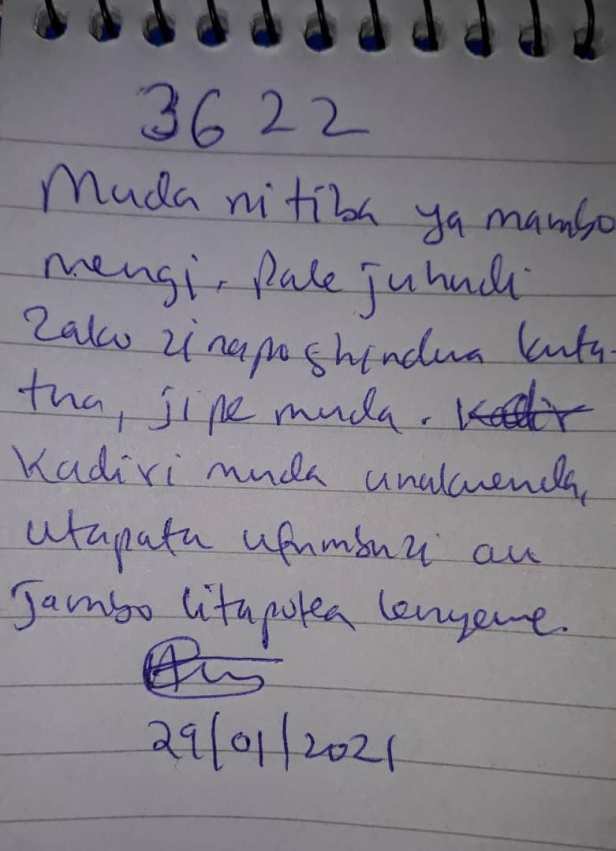 3622
Muda ni tiba ya mambo
mengi. Pale juhudi
zako zinaposhindwa kuta-
tua, jipe muda. Kadir
Kadiri muda unakwenda,
utapata ufumbuzi au
Jambo litapotea lenyewe.
29/01/2021